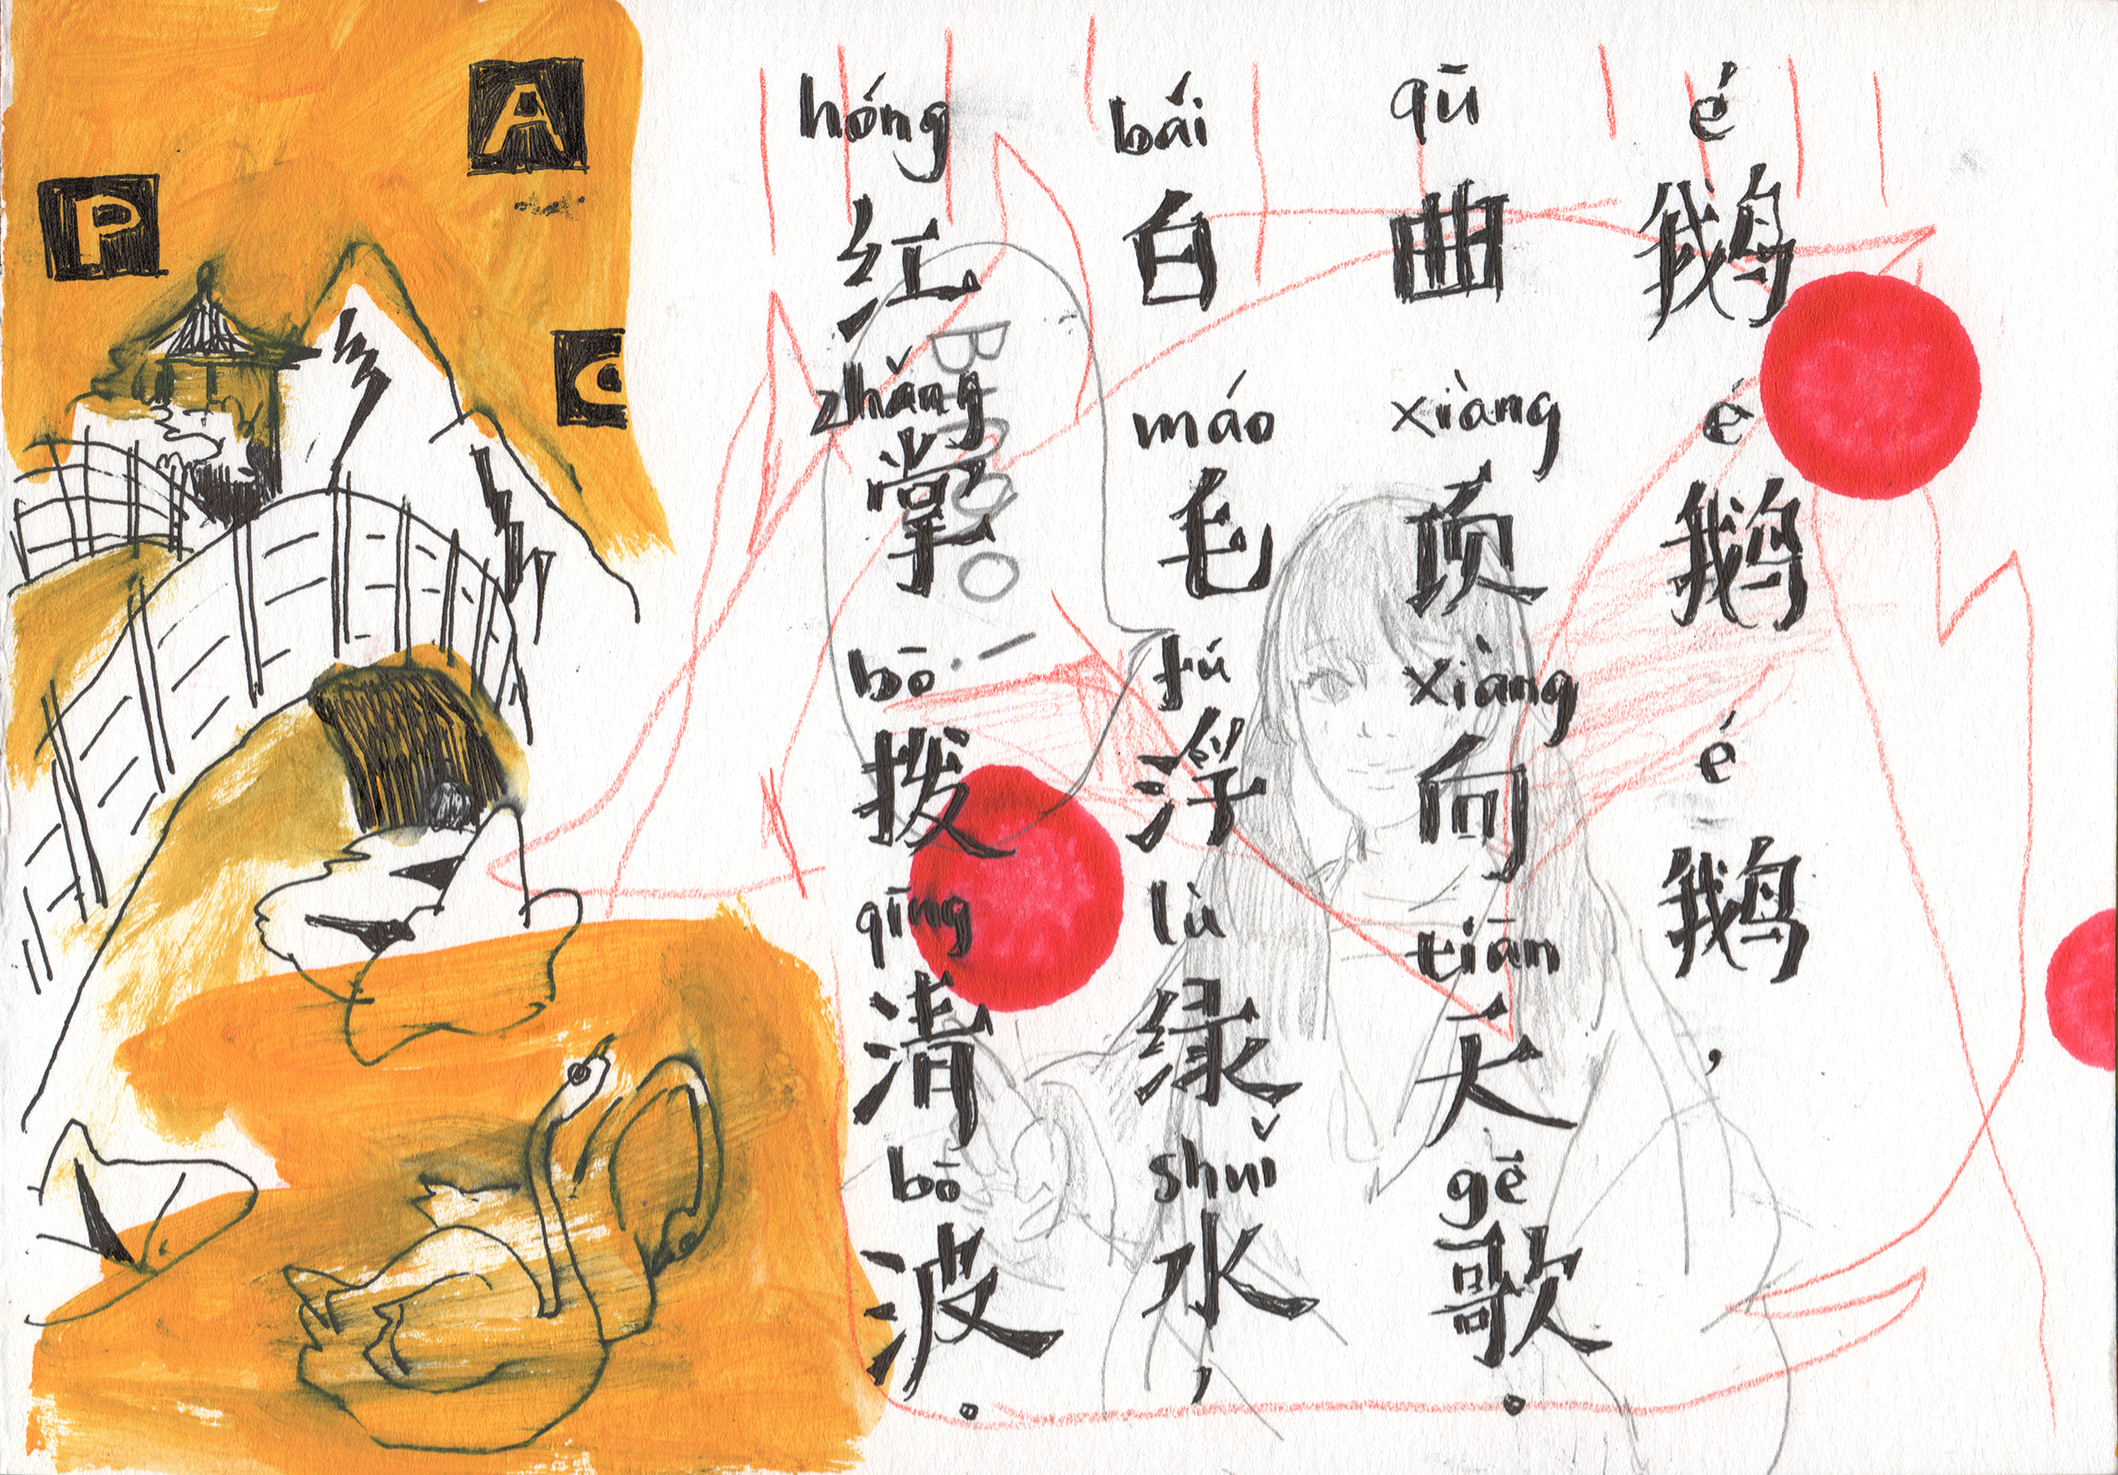 P
A
C
é 鹅 é 鹅 é 鹅,
qū 曲 xiàng 项 xiàng 向 tiān 天 gē 歌。
bái 白 máo 毛 fú 浮 lù 绿 shuǐ 水,
hóng 红 zhǎng 掌 bō 拨 qīng 清 bō 波。